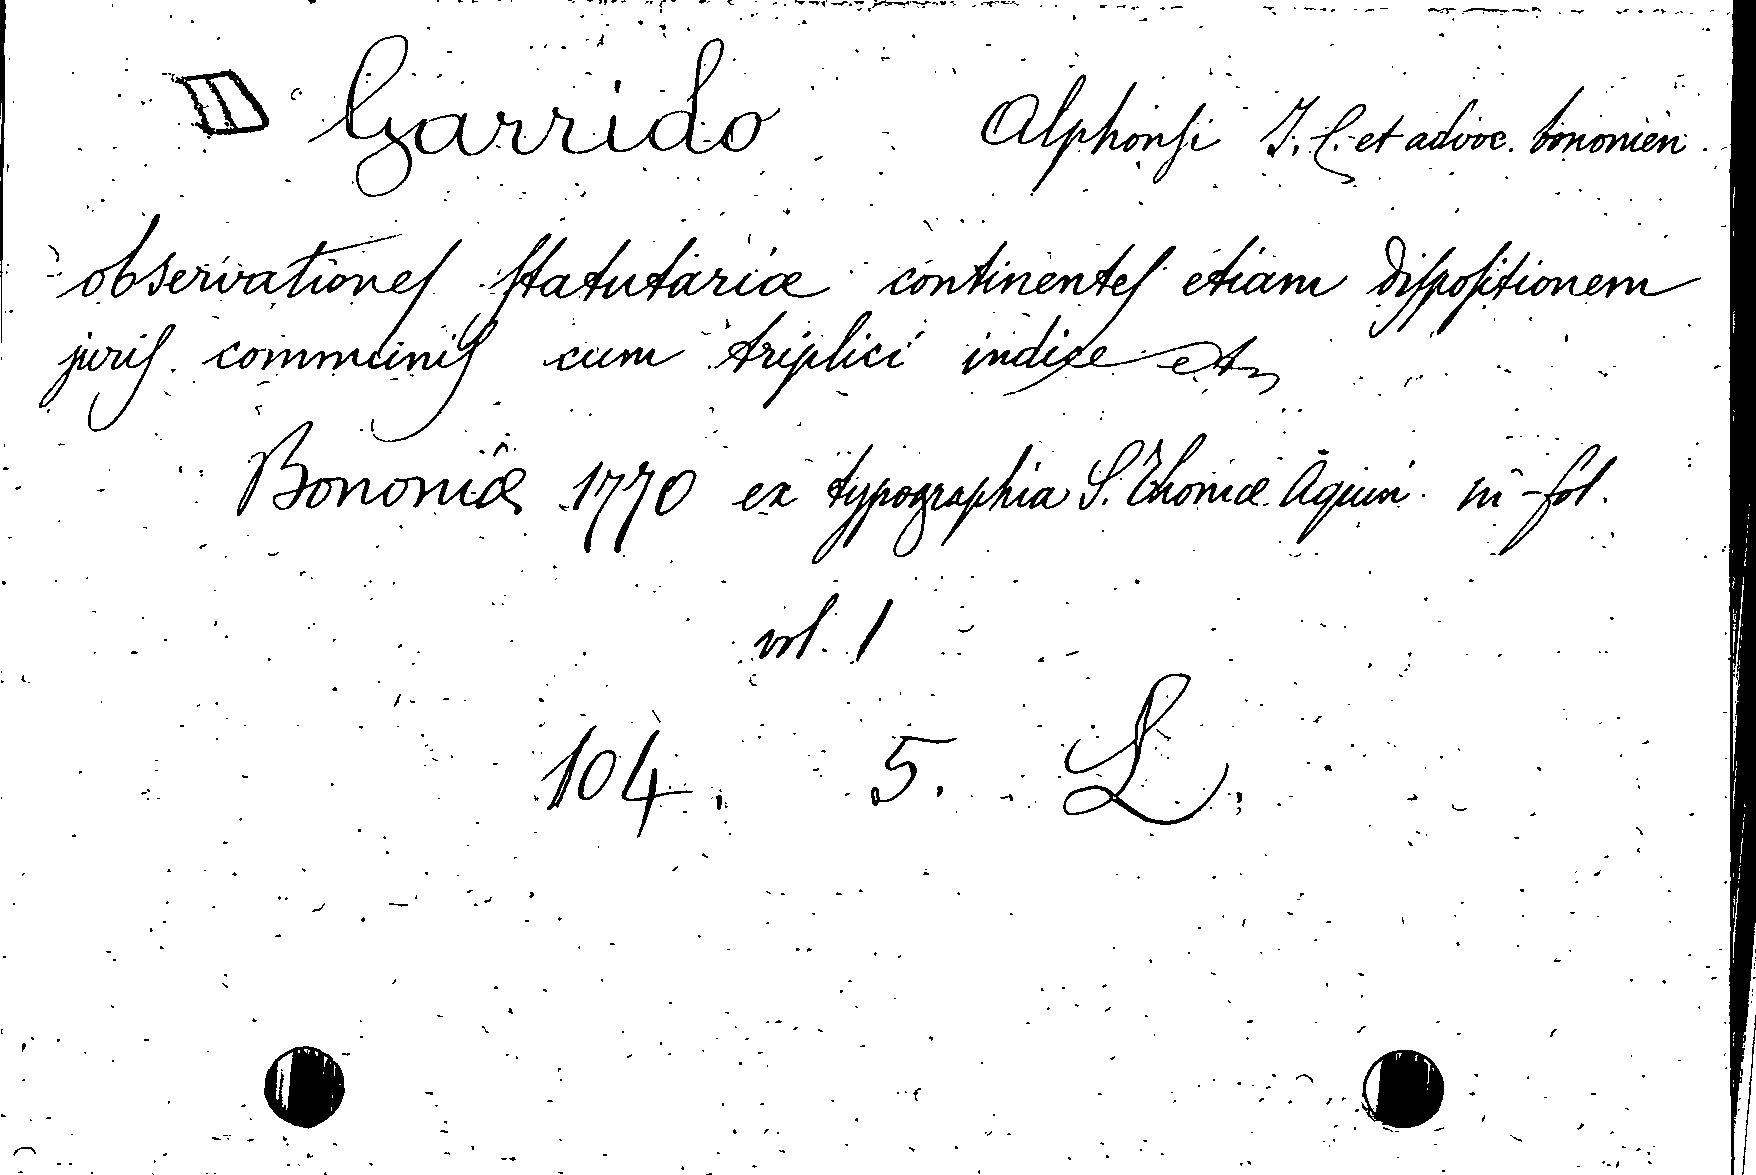 Garrido Alphonsi J. C. et advoc. bononien.
observationes statutariæ continentes etiam dispositionem
juris communis cum triplici indice etc
Bononiæ 1770 ex typographia S. Thomæ Aquin. in-fol.
vol. 1
104. 5. L.